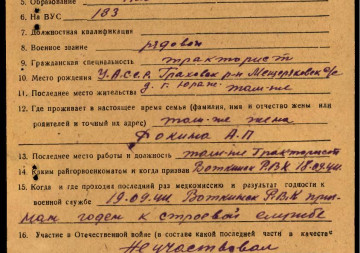 5. Образование
6. На ВУС 183
7. Должностная квалификация
8. Военное звание рядовой
9. Гражданская специальность тракторист
10. Место рождения У.А.С.С.Р. Граховск р-н Мещеряковск с/с
11. Последнее место жительства д. г. Юраж там-же
12. Где проживает в настоящее время семья (фамилия, имя и отчество жены или
родителей и точный их адрес) там-же жена
Фокина А.П
13. Последнее место работы и должность там-же Тракторист
14. Каким райгорвоенкоматом и когда призван Воткинск РВК 18.09.41.
15. Когда и где проходил последний раз медкомиссию и результат годности к
военной службе 19.09.41 Воткинск Р.В.К приз-
ман годен к строевой службе
16. Участие в Отечественной войне (в составе какой последней части и в качестве
Не участвовал